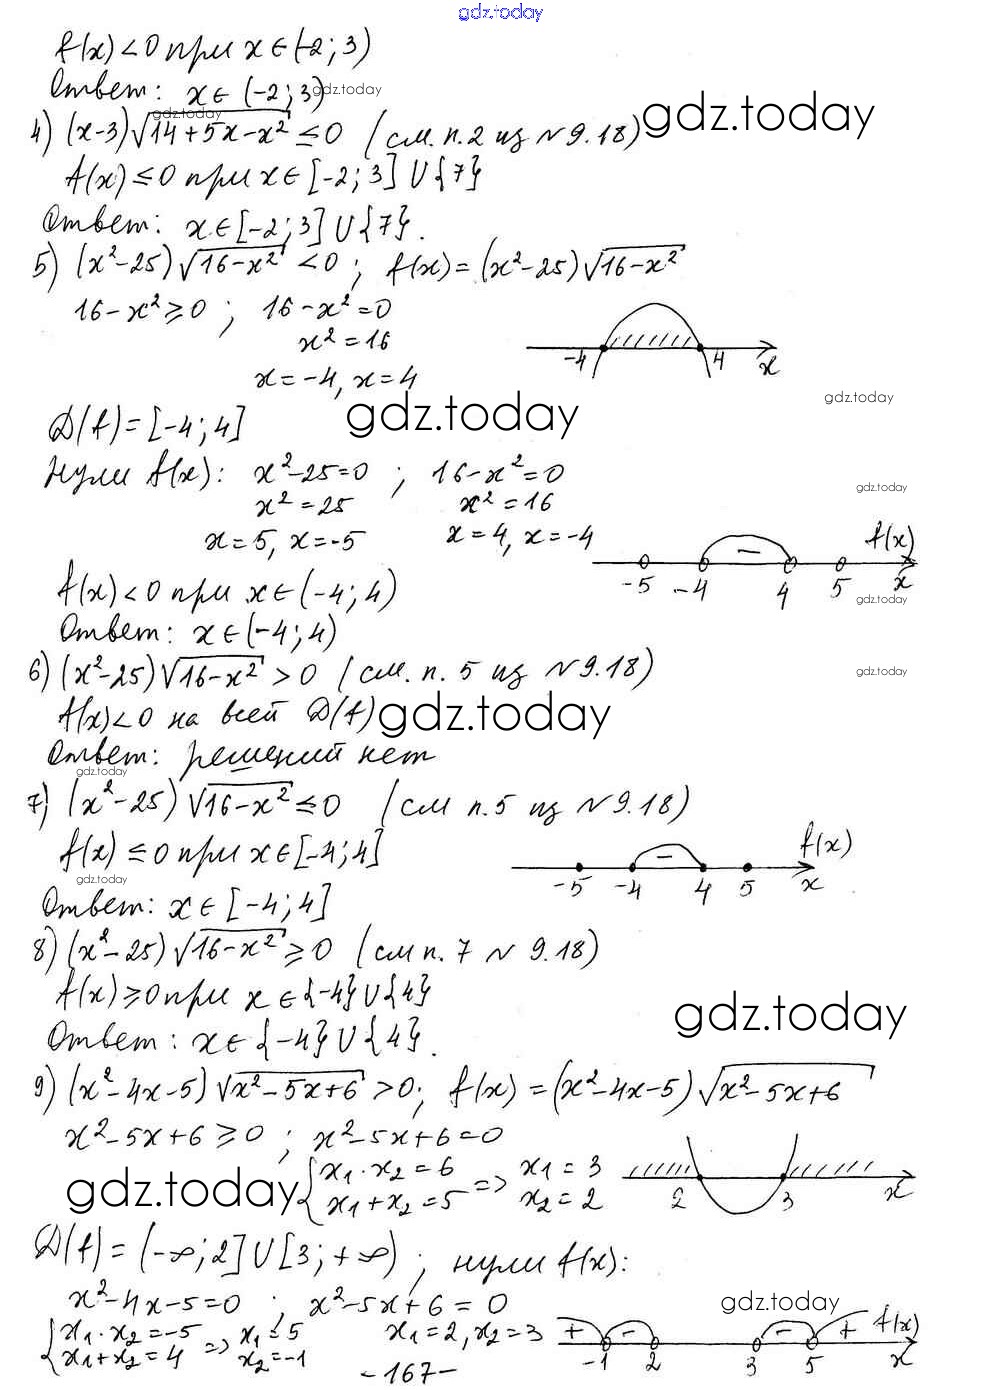 gdz.today
f(x)<0 при x∈(-2; 3)
Ответ: x∈ (-2; 3) gdz.today
gdz.today
4) (x-3)√14+5x-x² ≤0 (см. п.2 из №9.18) gdz.today
f(x)≤0 при x∈[-2; 3]∪{7}
Ответ: x∈[-2; 3]∪{7}.
5) (x²-25)√16-x² <0; f(x)=(x²-25)√16-x²
16-x²≥0; 16-x²=0
x²=16
-4 4 x
x=-4, x=4
gdz.today
D(f)=[-4; 4] gdz.today
Нули f(x): x²-25=0; 16-x²=0
gdz.today
x²=25 x²=16
x=5, x=-5 x=4, x=-4 f(x)
-
-5 -4 4 5 x
f(x)<0 при x∈(-4; 4) gdz.today
Ответ: x∈(-4; 4)
6) (x²-25)√16-x² >0 (см. п. 5 из №9.18) gdz.today
f(x)<0 на всей D(f) gdz.today
Ответ: решений нет
gdz.today
7) (x²-25)√16-x² ≤0 (см п.5 из №9.18)
f(x)≤0 при x∈[-4; 4] - f(x)
gdz.today -5 -4 4 5 x
Ответ: x∈[-4; 4]
8) (x²-25)√16-x² ≥0 (см п. 7 №9.18)
f(x)≥0 при x∈{-4}∪{4}
gdz.today
Ответ: x∈{-4}∪{4}.
9) (x²-4x-5)√x²-5x+6 >0; f(x)=(x²-4x-5)√x²-5x+6
x²-5x+6≥0; x²-5x+6=0
gdz.today {x₁·x₂=6 => x₁=3
x₁+x₂=5 x₂=2 2 3 x
D(f)=(-∞; 2]∪[3; +∞); нули f(x):
x²-4x-5=0; x²-5x+6=0 gdz.today
{x₁·x₂=-5 => x₁=5 x₁=2, x₂=3 + - - + f(x)
x₁+x₂=4 x₂=-1 -1 2 3 5 x
-167-